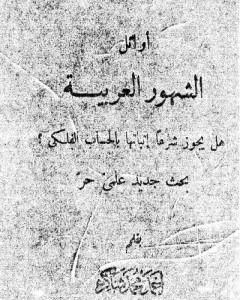 أوائل
الشهور العربية
هل يجوز شرعًا إثباتها بالحساب الفلكى ؟
بحث جديد علمى حرّ
بقلم
أحمد محمد شاكر